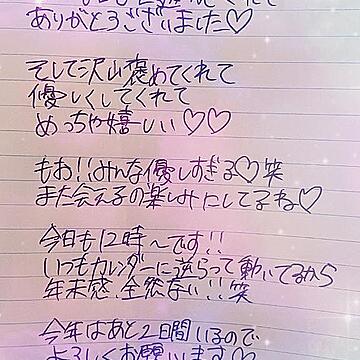 てくれて
ありがとうございました♡
そして沢山褒めてくれて
優しくしてくれて
めっちゃ嬉しい♡♡
もお!!みんな優しすぎる♡笑
また会える子の楽しみにしてるね♡
今日も12時〜です!!
いつもカレンダーに逆らって動いてるから
年末感、全然ない!!笑
今年はあと2日間いるので
よろしくお願いします♡